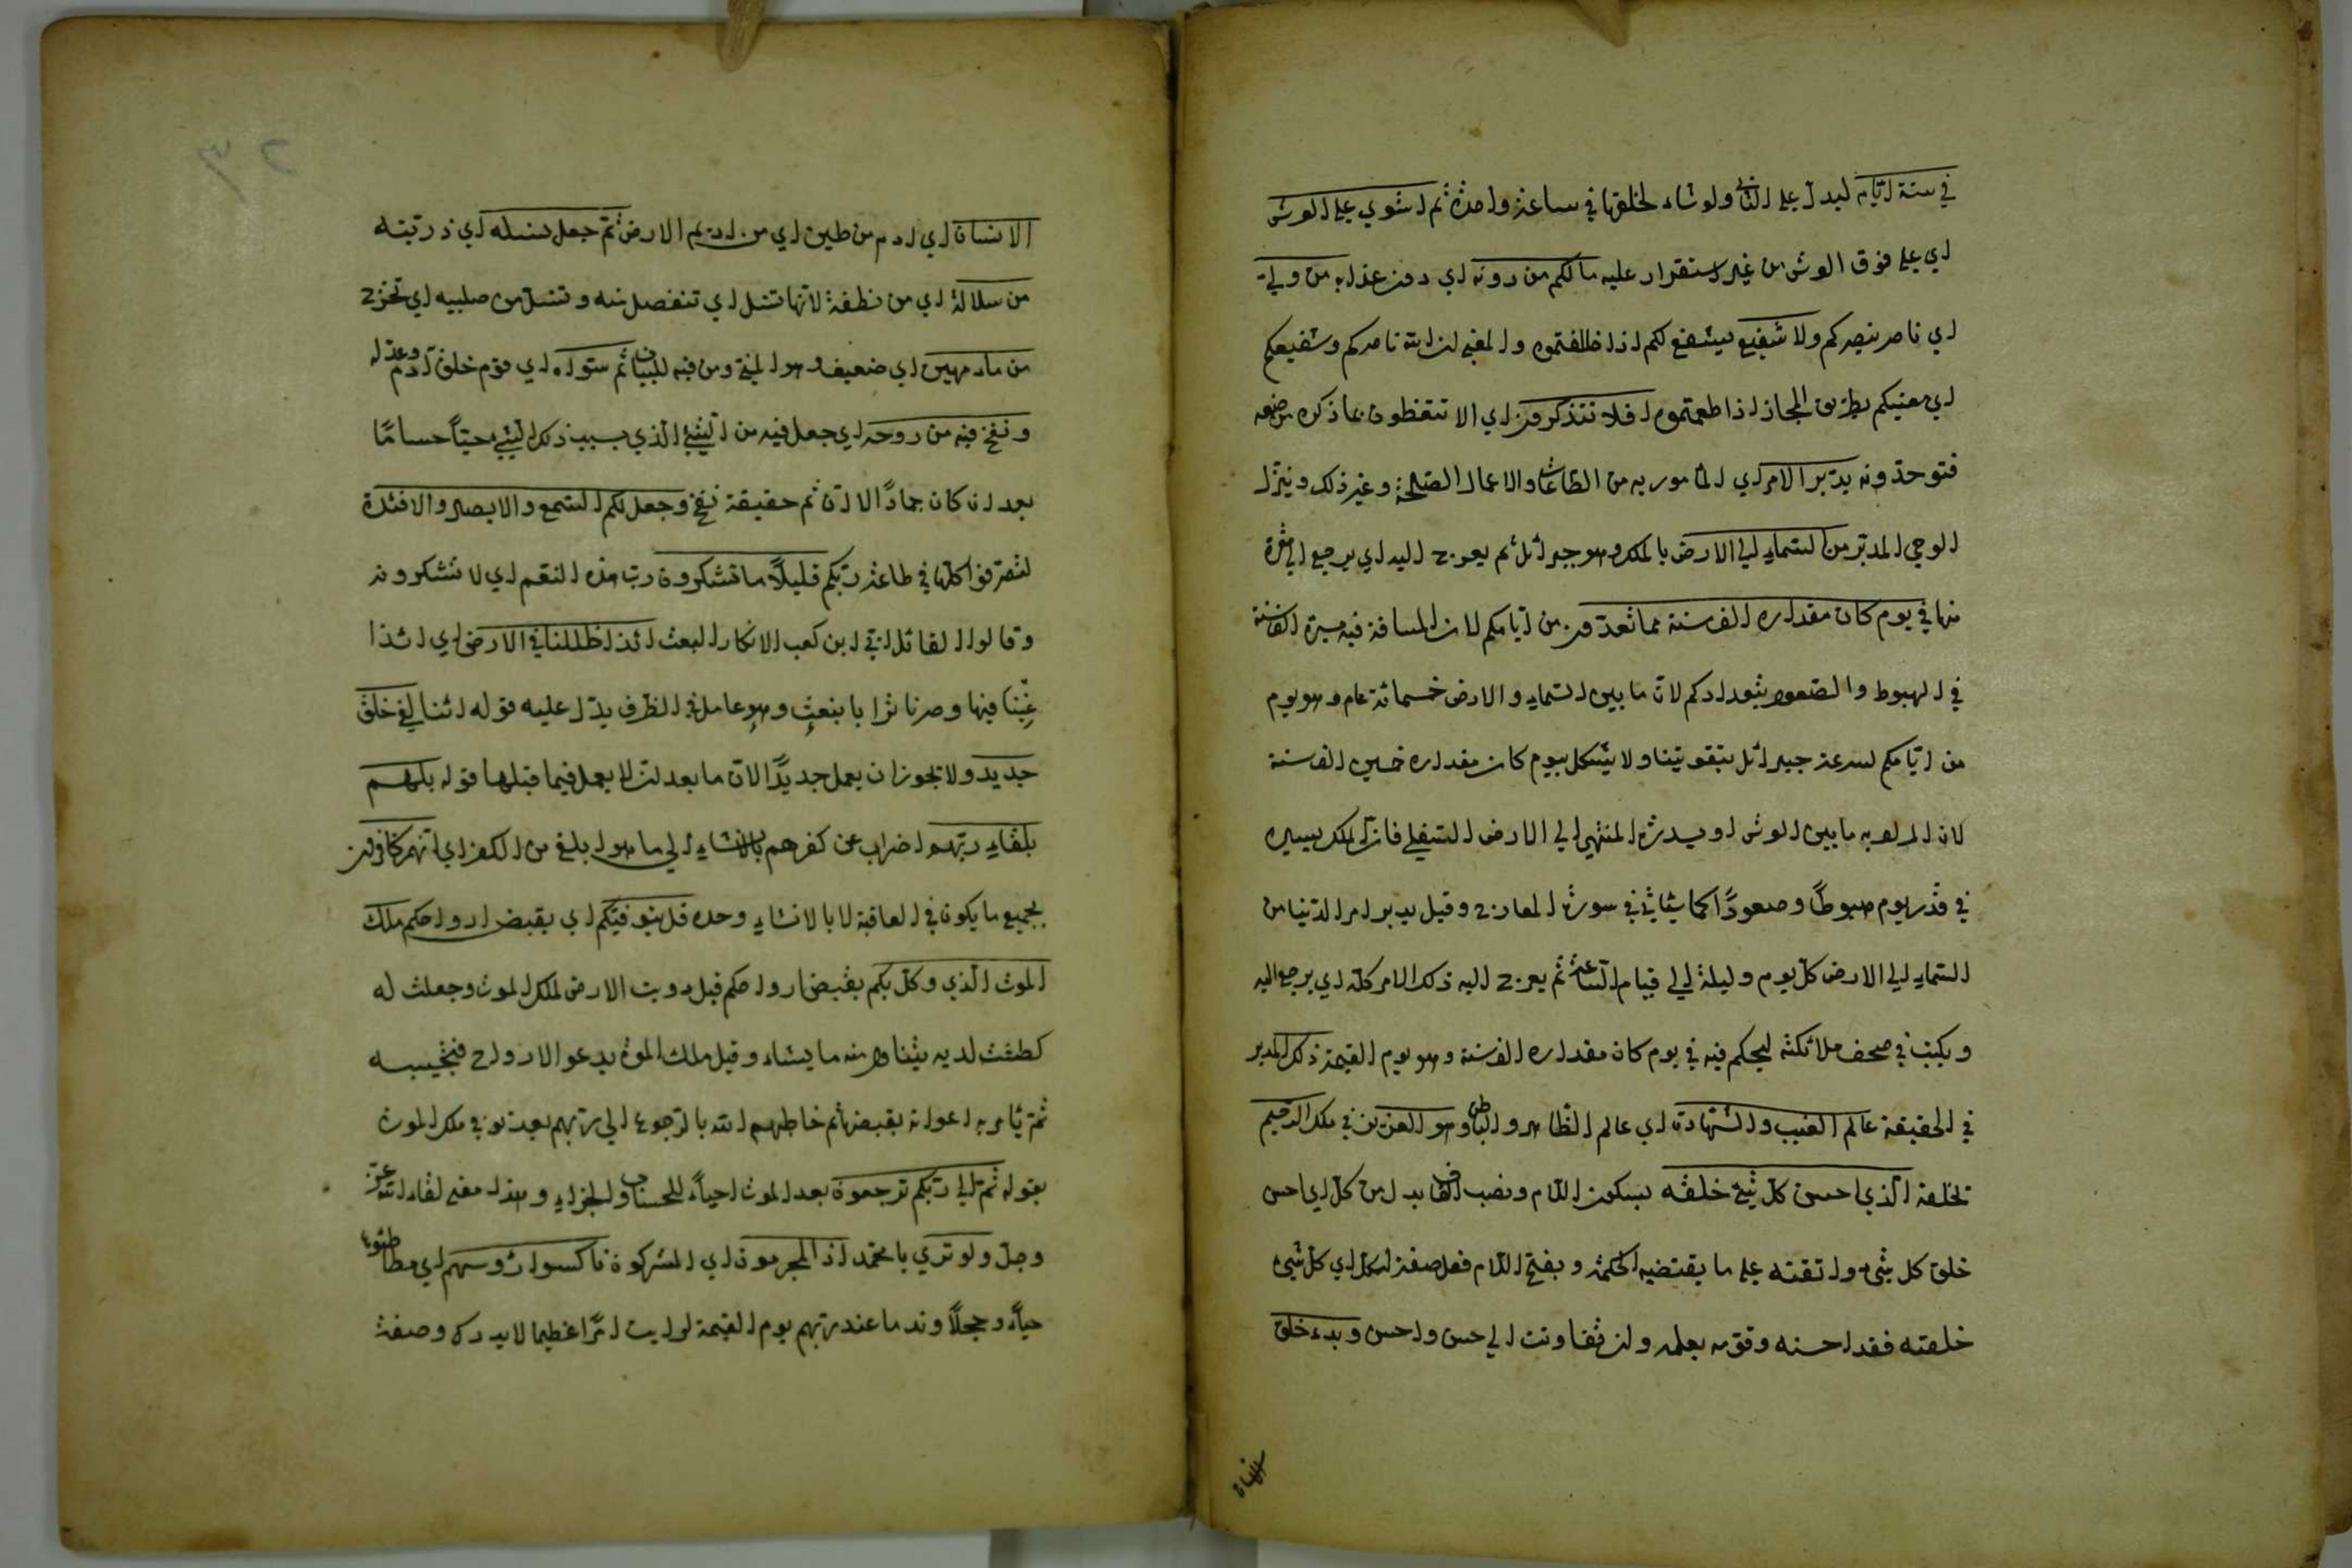 في ستة ايام ليدل على التأني ولو شاء لخلقها في ساعة واحدة ثم استوي على العرش
اي على فوق العرش من غير استقرار عليه مالكم من دونه اي دون عذابه من ولي
اي ناصر ينصركم ولا شفيع يشفع لكم اذا خالفتموه والمعنى ان الله ناصركم وشفيعكم
اي معينكم بطريق المجاز اذا اطعتموه افلا تتذكرون اي الا تتعظون بما ذكره من صنعه
فتوحدونه يدبر الامر اي المأمور به من الطاعات والاعمال الصالحة وغير ذلك وينزل
الوحي المدبر من السماء الي الارض بالملك وهو جبرائل ثم يعرج اليه اي يرجع الي مقره
منها في يوم كان مقداره الف سنة مما تعدون من ايامكم لان المسافة فيه مسيرة الف سنة
في الهبوط والصعود بتعدادكم لان ما بين السماء والارض خسمائة عام وهو يوم
من ايامكم لسرعة جبرائل بتقويتنا ولا يشكل بيوم كان مقداره خمسين الف سنة
لان المراد به ما بين العرش او سدرة المنتهي الي الارض السفلي فان الملك يسيره
في قدر يوم هبوطا وصعودا كما سيأتي في سورة المعارج وقيل يدبر امر الدنيا من
السماء الي الارض كل يوم وليلة الي قيام الساعة ثم يعرج اليه ذلك الامر كله اي يرجع اليه
ويكتب في صحف ملائكته ليحكم فيه في يوم كان مقداره الف سنة وهو يوم القيمة ذلك المدبر
في الحقيقة عالم الغيب والشهادة اي عالم الظاهر والباطن وهو العزيز في ملكه الرحيم
لخلقه الذي احسن كل شئ خلقه بسكون اللام ونصب القاف بدل من كل اي احسن
خلق كل شئ واتقنه على ما يقتضيه الحكمة وبفتح اللام فعل صفة لكل اي كل شئ
خلقته فقد احسنه وقومه بعلمه وان تفاوتت الي حسن واحسن وبدء خلق
الانسان
الانسان اي ادم من طين اي من اديم الارض ثم جعل نسله اي ذريته
من سلالة اي من نطفة لانها تنسل اي تنفصل منه وتنسل من صلبه اي تخرج
من ماء مهين اي ضعيف وهو المني ومن فيه للبيان ثم سواه اي قوم خلق ادم وعدله
ونفخ فيه من روحه اي جعل فيه من الشئ الذي بسبب ذلك الشئ حيا حساسا
بعد ان كان جمادا الا ان ثم حقيقة نفخ وجعل لكم السمع والابصار والافئدة
لتصرفوا كلها في طاعة ربكم قليلا ما تشكرون رب هذه النعم اي لا تشكرونه
وقالوا القائل ابي ابن كعب الانكار البعث ائذا ظللنا في الارض اي ائذا
غبنا فيها وصرنا ترابا نبعث وهو عامل في الظرف يدل عليه قوله ائنا لفي خلق
جديد ولا يجوز ان يعمل جديدا الان ما بعد ان لا يعمل فيما قبلها قوله بل هم
بلقاء ربهم اضراب عن كفرهم بالانشاء الي ما هو ابلغ من الكفر اي انهم كافرون
بجميع ما يكون في العاقبة لا بالانشاء وحده قل يتوفيكم اي يقبض ارواحكم ملك
الموت الذي وكل بكم بقبض ارواحكم قيل دويت الارض لملك الموت وجعلت له
كطشت لديه يتناول منه ما يشاء وقيل ملك الموت يدعو الارواح فتجيبه
ثم يأمر به اعوانه بقبضها ثم خاطبهم الله بالرجوع الي ربهم بعد توفي ملك الموت
بقوله ثم الي ربكم ترجعون بعد الموت احياء للحساب والجزاء وهذا معني لقاء الله عز
وجل ولو تري يا محمد اذ المجرمون اي المشركون ناكسوا رؤسهم اي مطأطئوا
حياء وخجلا وندما عند ربهم يوم القيمة لرايت امرا عظيما لا يدرك وصفه